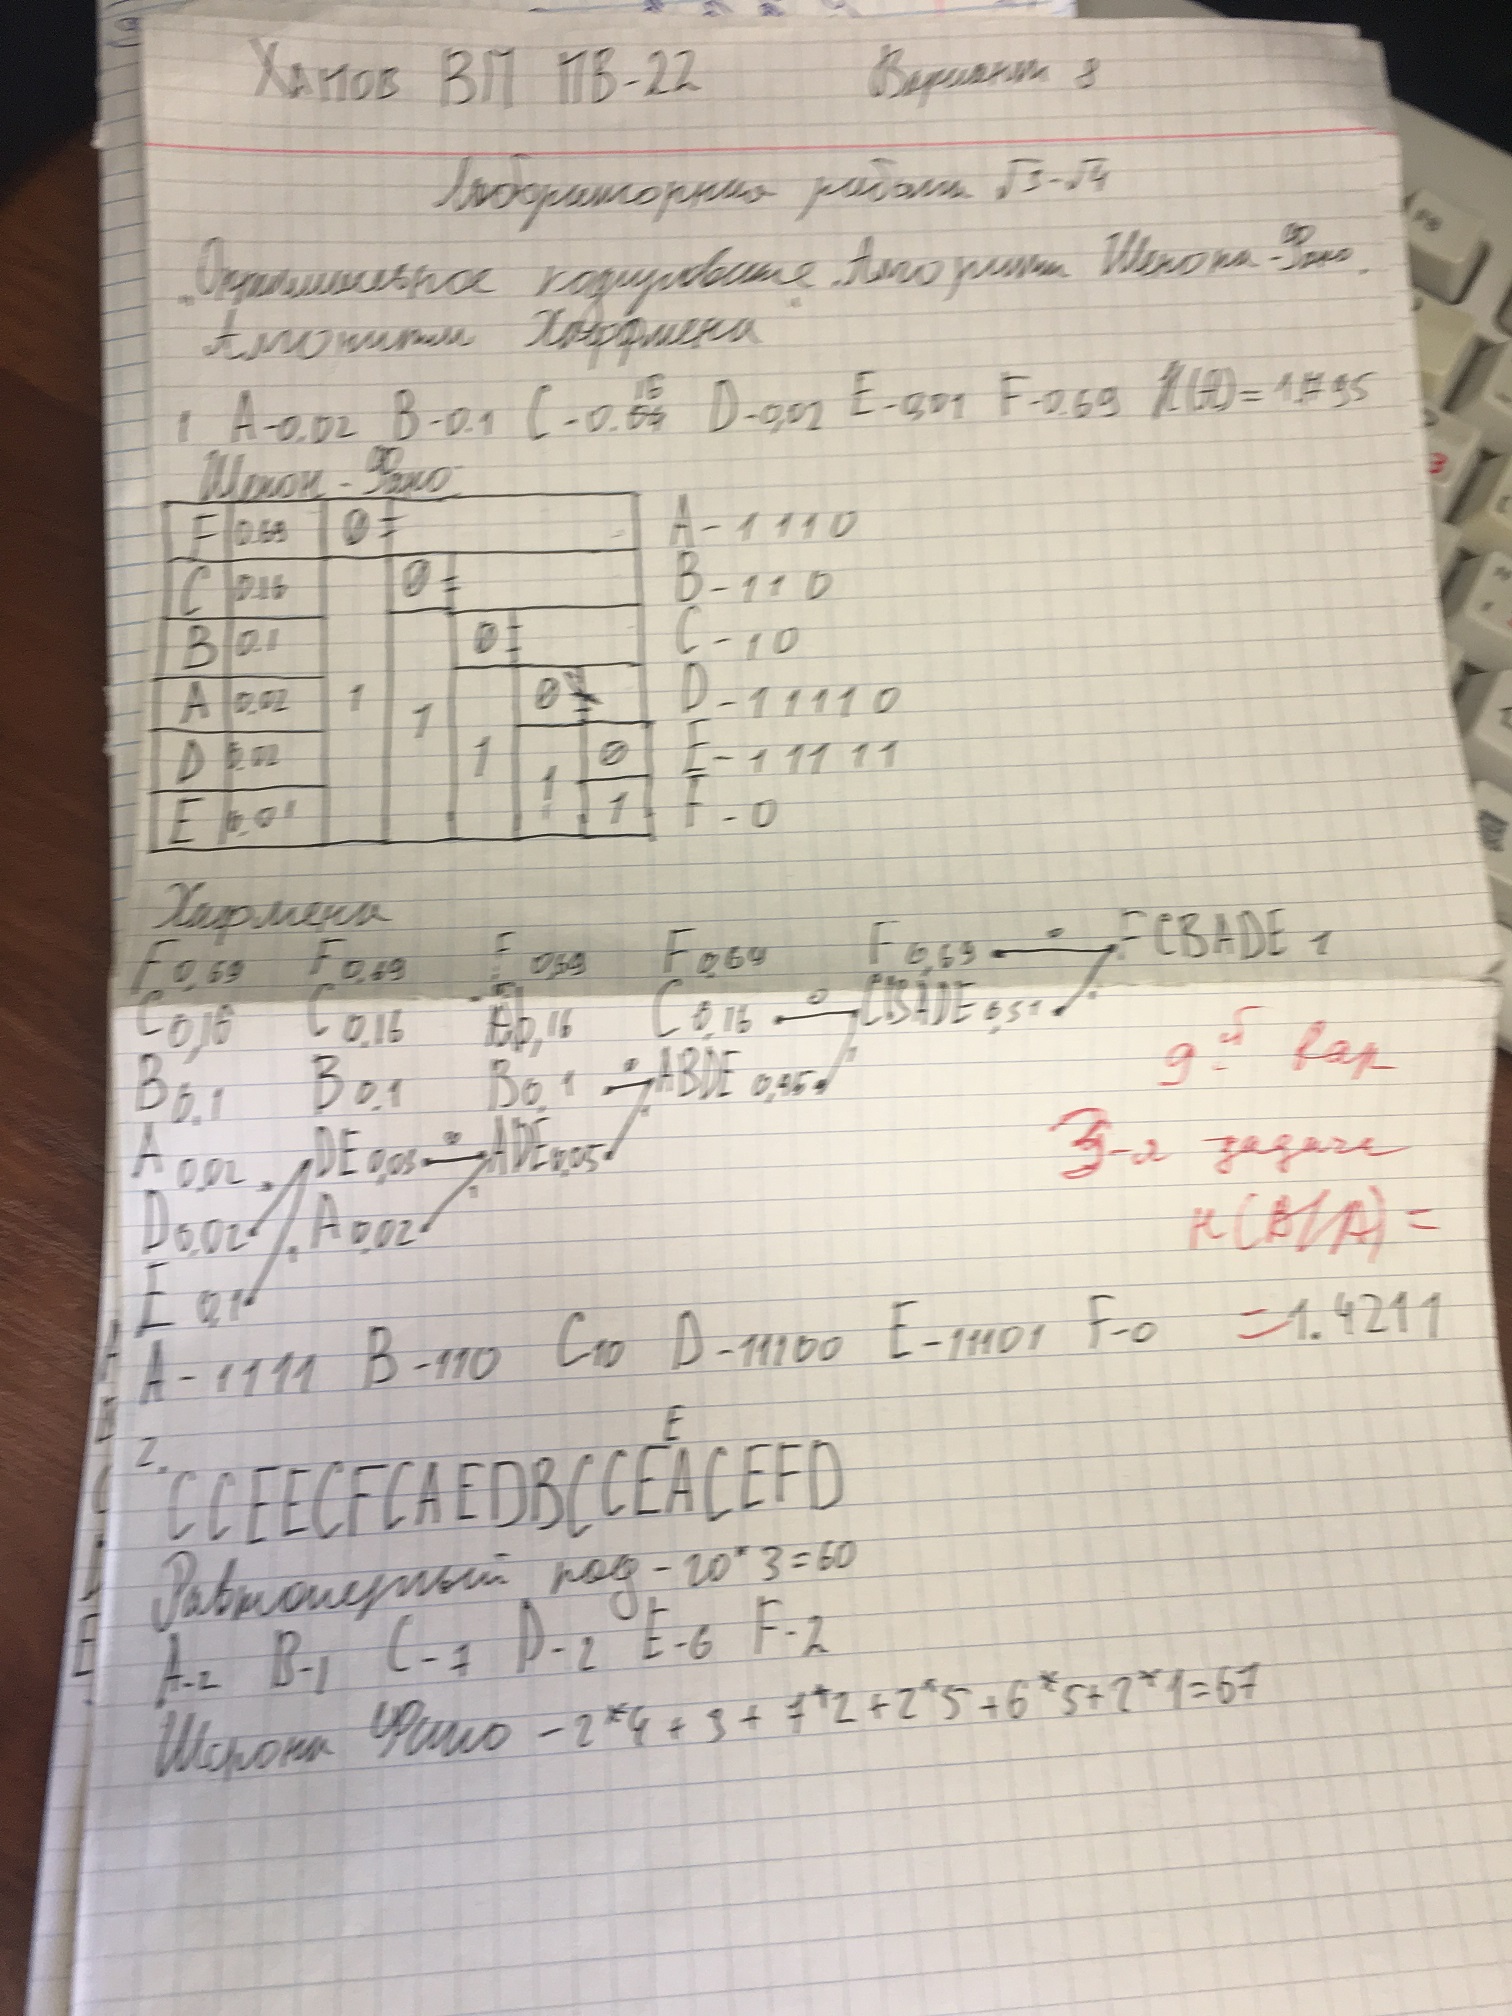 Ханов ВП ПВ-22 Вариант 8
Лабораторная работа №3-№4
"Оптимальное кодирование. Алгоритм Шенона-Фано.
Алгоритм Хаффмена"
1 A-0.02 B-0.1 C-0.16 D-0,02 E-0,01 F-0.69 H(A)=1.1795
Шенон-Фано
F 0.69 0 A-1110
C 0.16 0 B-110
B 0.1 0 C-10
A 0,02 1 1 0 D-11110
D 0.02 1 1 0 E-11111
E 0.01 1 F-0
Хафмена
F 0,69 F 0,69 F 0,69 F 0,69 F 0,69 0 FCBADE 1
C 0,16 C 0,16 0,16 C 0,16 0 CBADE 0,31
9-й вар
B 0.1 B 0.1 B 0,1 0 ABDE
A 0.02 DE 0,03 0 ADE 0,05
3-я задача
D 0.02 A 0.02
H(B/A)=
E 0,1
A-1111 B-110 C10 D-11100 E-11101 F-0 =1.4211
E
2. CCEECFCAEDBCCCEACEFD
Равномерный код-20*3=60
A-2 B-1 C-7 D-2 E-6 F-2
Шенона Фано -2*4+3+7*2+2*5+6*5+2*1=67